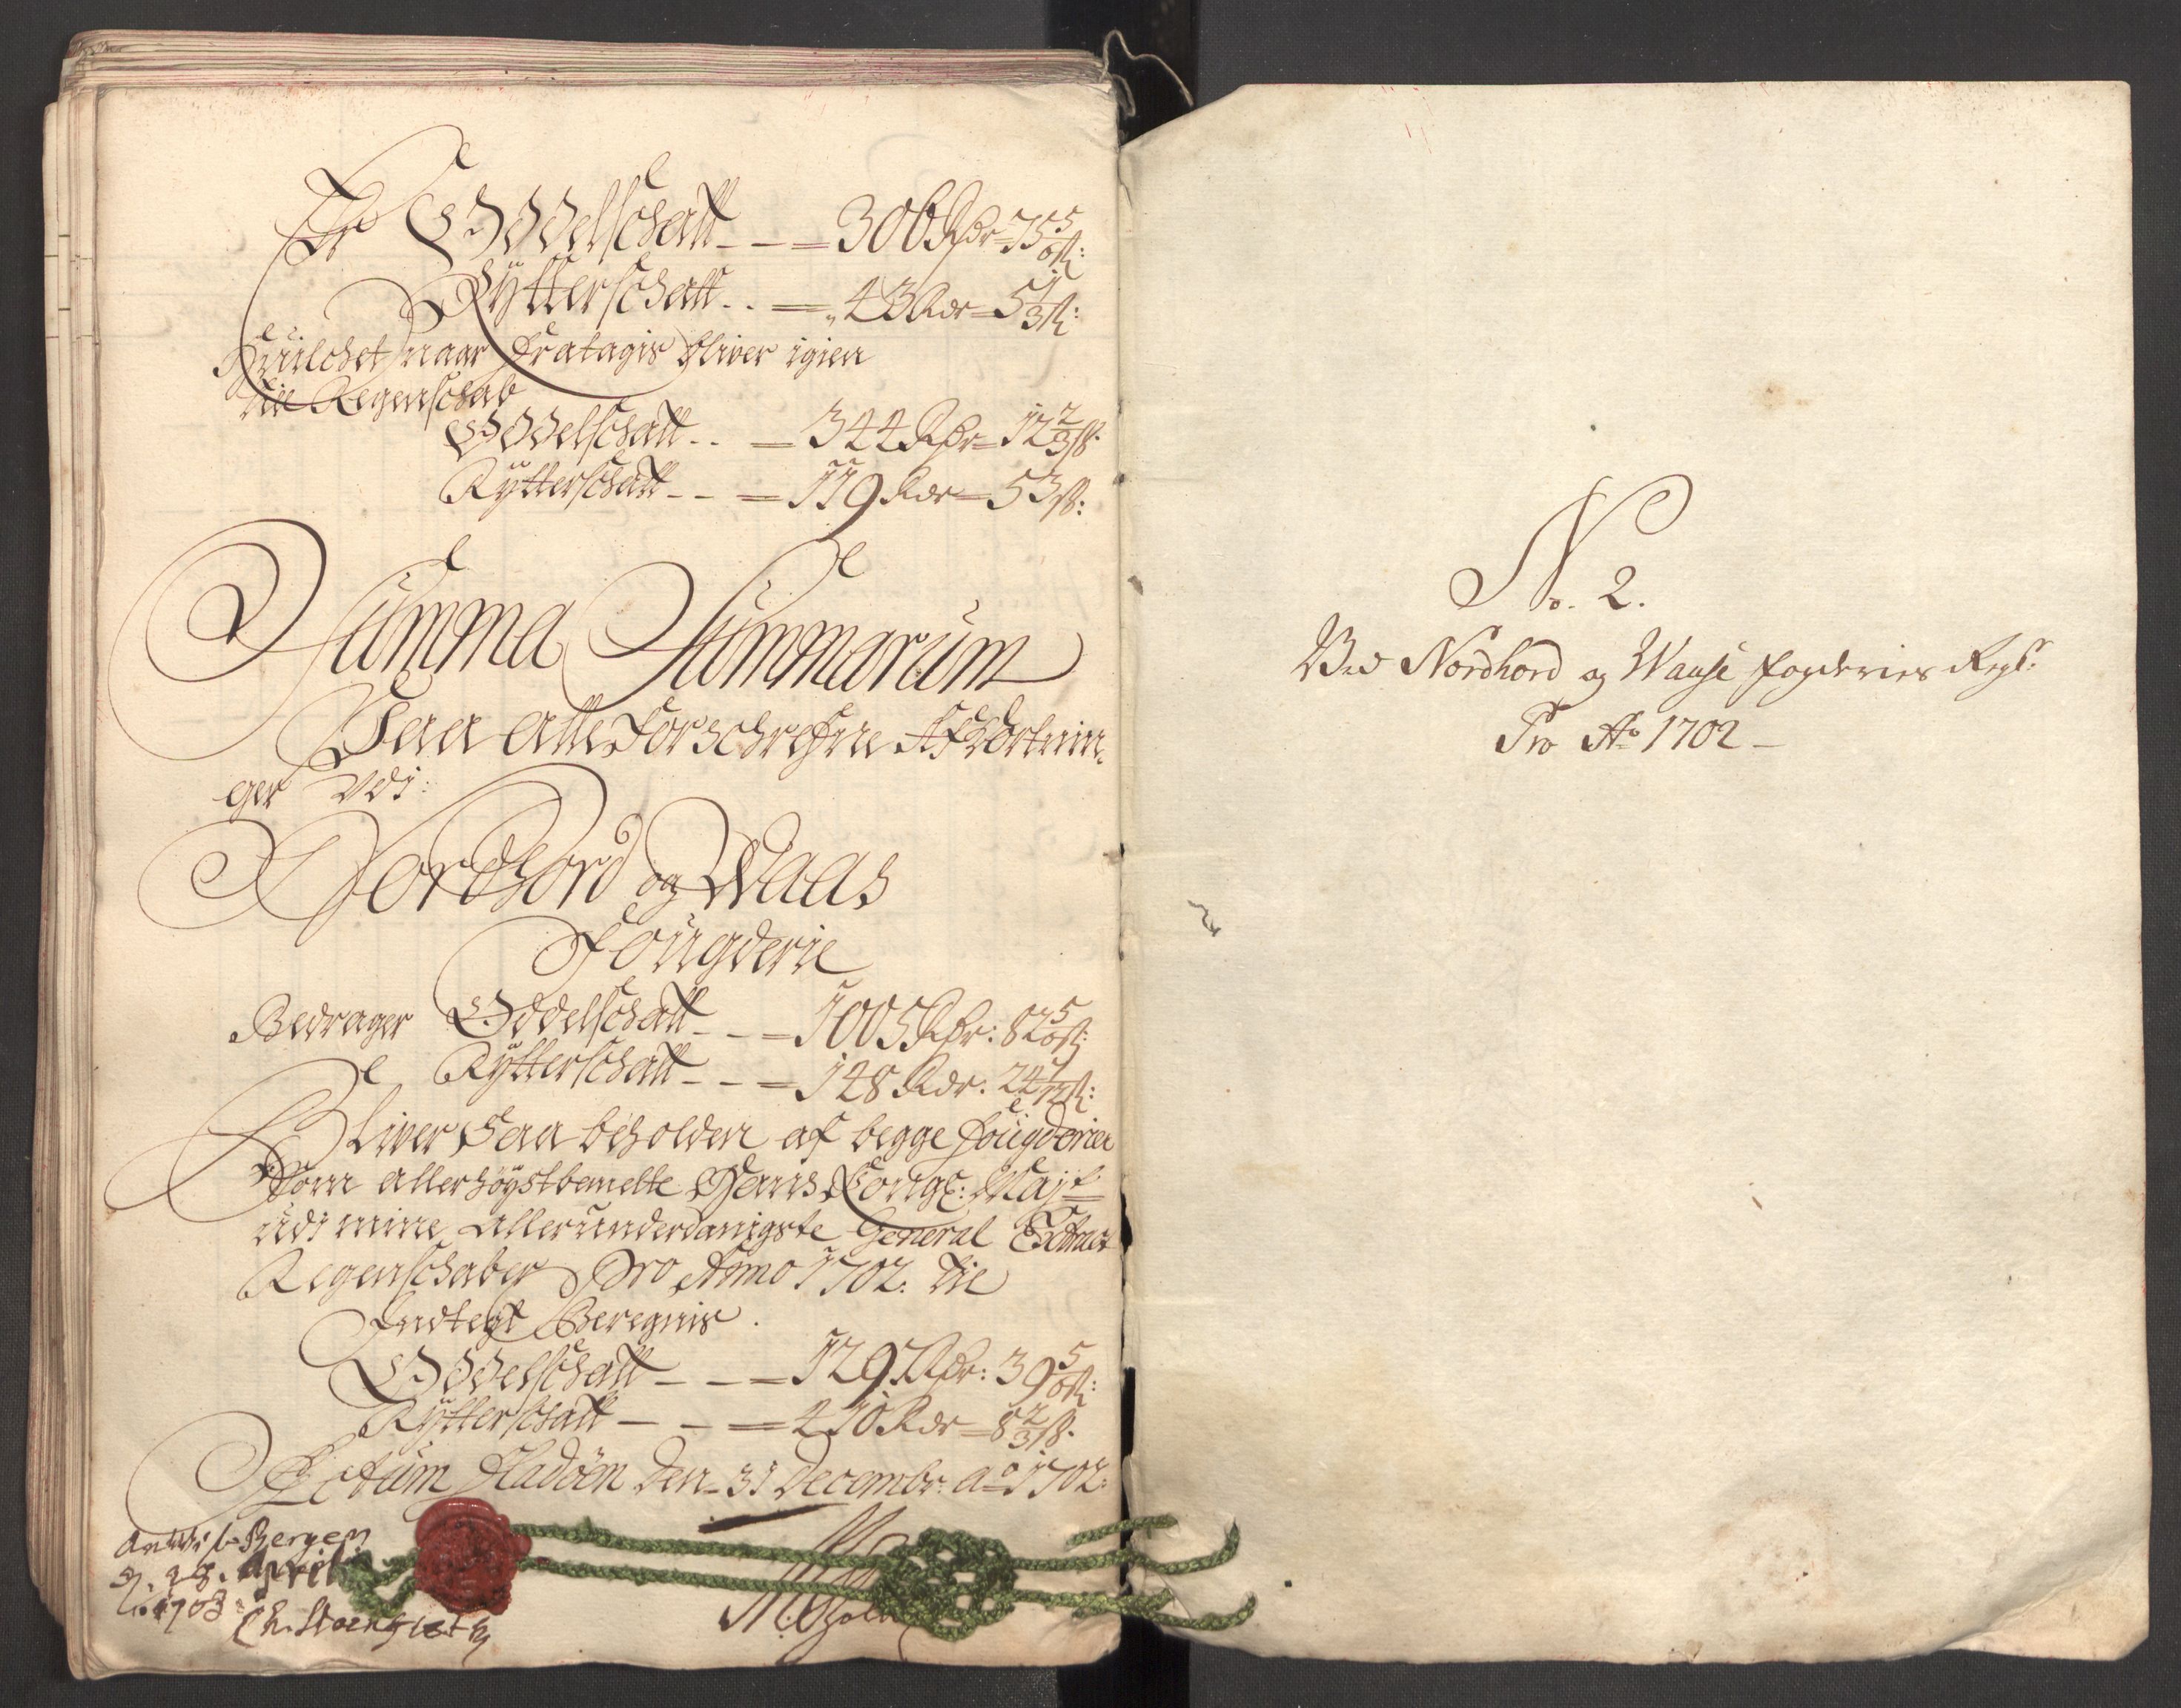 Er Oddelschatt - - = 306 Rdr = 75 5/6 ß:
Rÿtterschatt - - = 43 Rdr = 5 1/3 ß:
Huilchet naar fratagis bliver igien
till Regenschab
Oddelschatt - - = 344 Rdr = 12 2/3 ß.
Rÿtterschatt - - = 119 Rdr = 53 ß:
Summa Summarum
Paa alle Forschrefne Afkortnin-
ger Vdi:
Nordhord og Waas
Fougderie
Bedrager Oddelschatt - - = 1005 Rdr: 82 5/6 ß:
Rÿtterschatt - - = 148 Rdr. 24 1/12 ß:
Bliver saa beholden af begge fougderier
som allerhöÿstbemelte Hans Kongl: Maÿt
udi mine allerunderdanigste General Extract
Regenschaber Pro Anno 1702. till
Indtegt Beregnis.
Oddelschatt - - = 1297 Rdr: 39 5/6 ß:
Rÿtterschatt - - = 410 Rdr = 8 2/3 ß.
Actum Hadöen den 31 Decembr: ao 1702:
Bergen
d. 28. April
Ao 1703:
No. 2.
Ved Nordhord og Waase fogderies Regs:
Pro Ao 1702 -